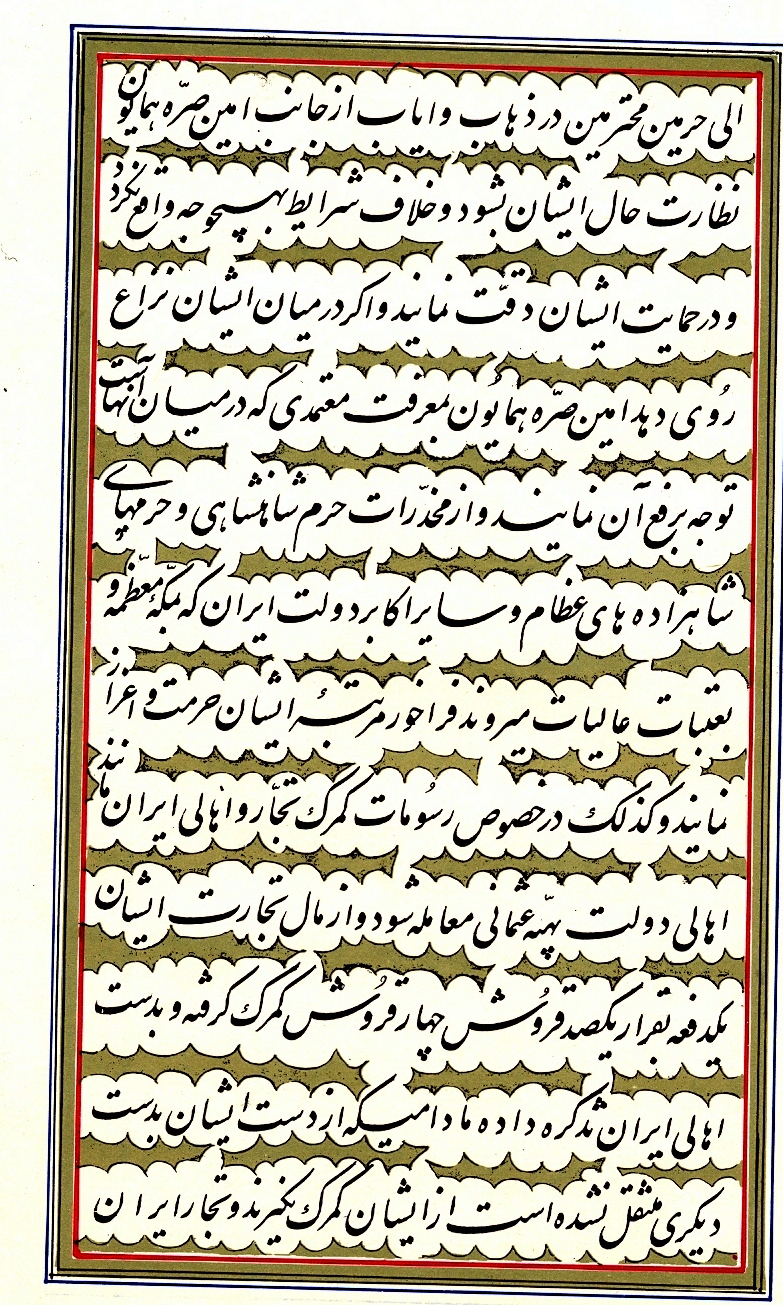 الی حرمین محترمین در ذهاب و ایاب از جانب امین صرّه همایون
نظارت حال ایشان بشود و خلاف شرایط بهیچوجه واقع نگردد
و در حمایت ایشان دقّت نمایند و اگر در میان ایشان نزاع
رُوی دهد امین صرّه همایُون بمعرفت معتمدی که در میان آنهاست
توجه برفع آن نمایند و از مخدّرات حرم شاهنشاهی و حرمهای
شاهزاده های عظام و سایر اکابر دولت ایران که بمکّهٔ معظّمه و
بعتبات عالیات میروند فراخور مرتبهٔ ایشان حرمت و اعزاز
نمایند و کذلک در خصوص رسُومات گمرک تجّار و اهالی ایران مانند
اهالی دولت بهیّه عثمانی معامله شود و از مال تجارت ایشان
یکدفعه بقرار یکصد قروُش چهار قروُش گمرک گرفته و بدست
اهالی ایران تذکره داده مادامیکه از دست ایشان بدست
دیگری منتقل نشده است از ایشان گمرک نگیرند و تجار ایران